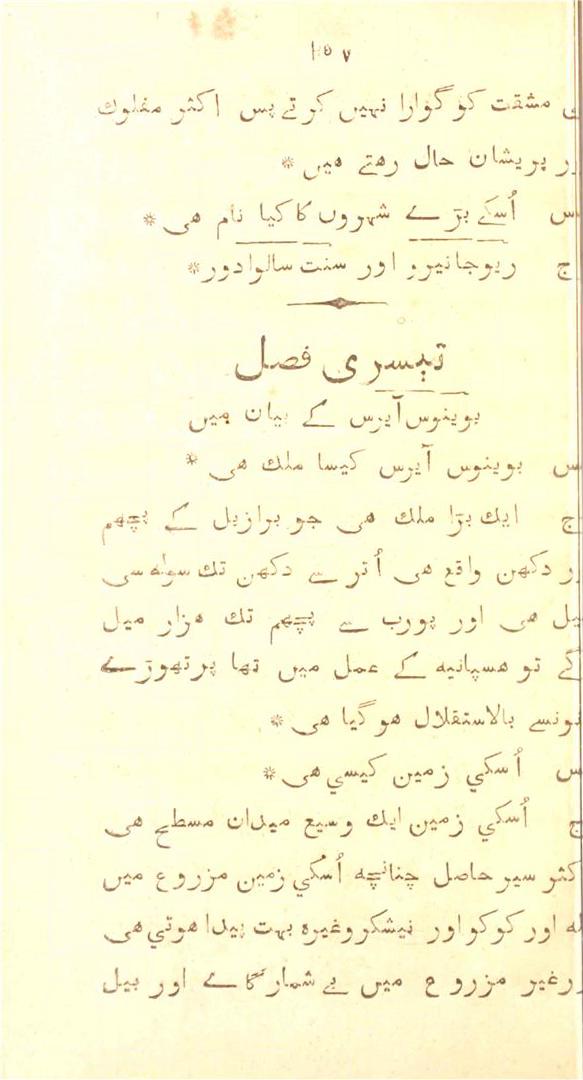 ۲۵۷
مشقت کو گوارا نہیں کرتے پس اکثر مفلوك
ر پریشان حال رهتے هیں *
س اُسکے بڑے شہروں کا کیا نام هی *
ج ریوجانیرو اور سنت سالوادور *
تیسری فصل
بوینوس آیرس کے بیان میں
س بوینوس آیرس کیسا ملك هی *
ج ایك بڑا ملك هی جو برازیل کے پچھم
ر دکھن واقع هی اُتر سے دکھن تك سولہ سی
یل هی اور پورب سے پچھم تك هزار میل
گے تو هسپانیه کے عمل میں تھا پر تھوڑے
نونسے بالاستقلال هو گیا هی *
س اُسکي زمین کیسي هی *
ج اُسکي زمین ایك وسیع میدان مسطح هی
کثر سیر حاصل چنانچه اُسکي زمین مزروع میں
له اور کوکو اور نیشکر وغیرہ بہت پیدا هوتي هی
ر غیر مزروع میں بے شمار گاے اور بیل